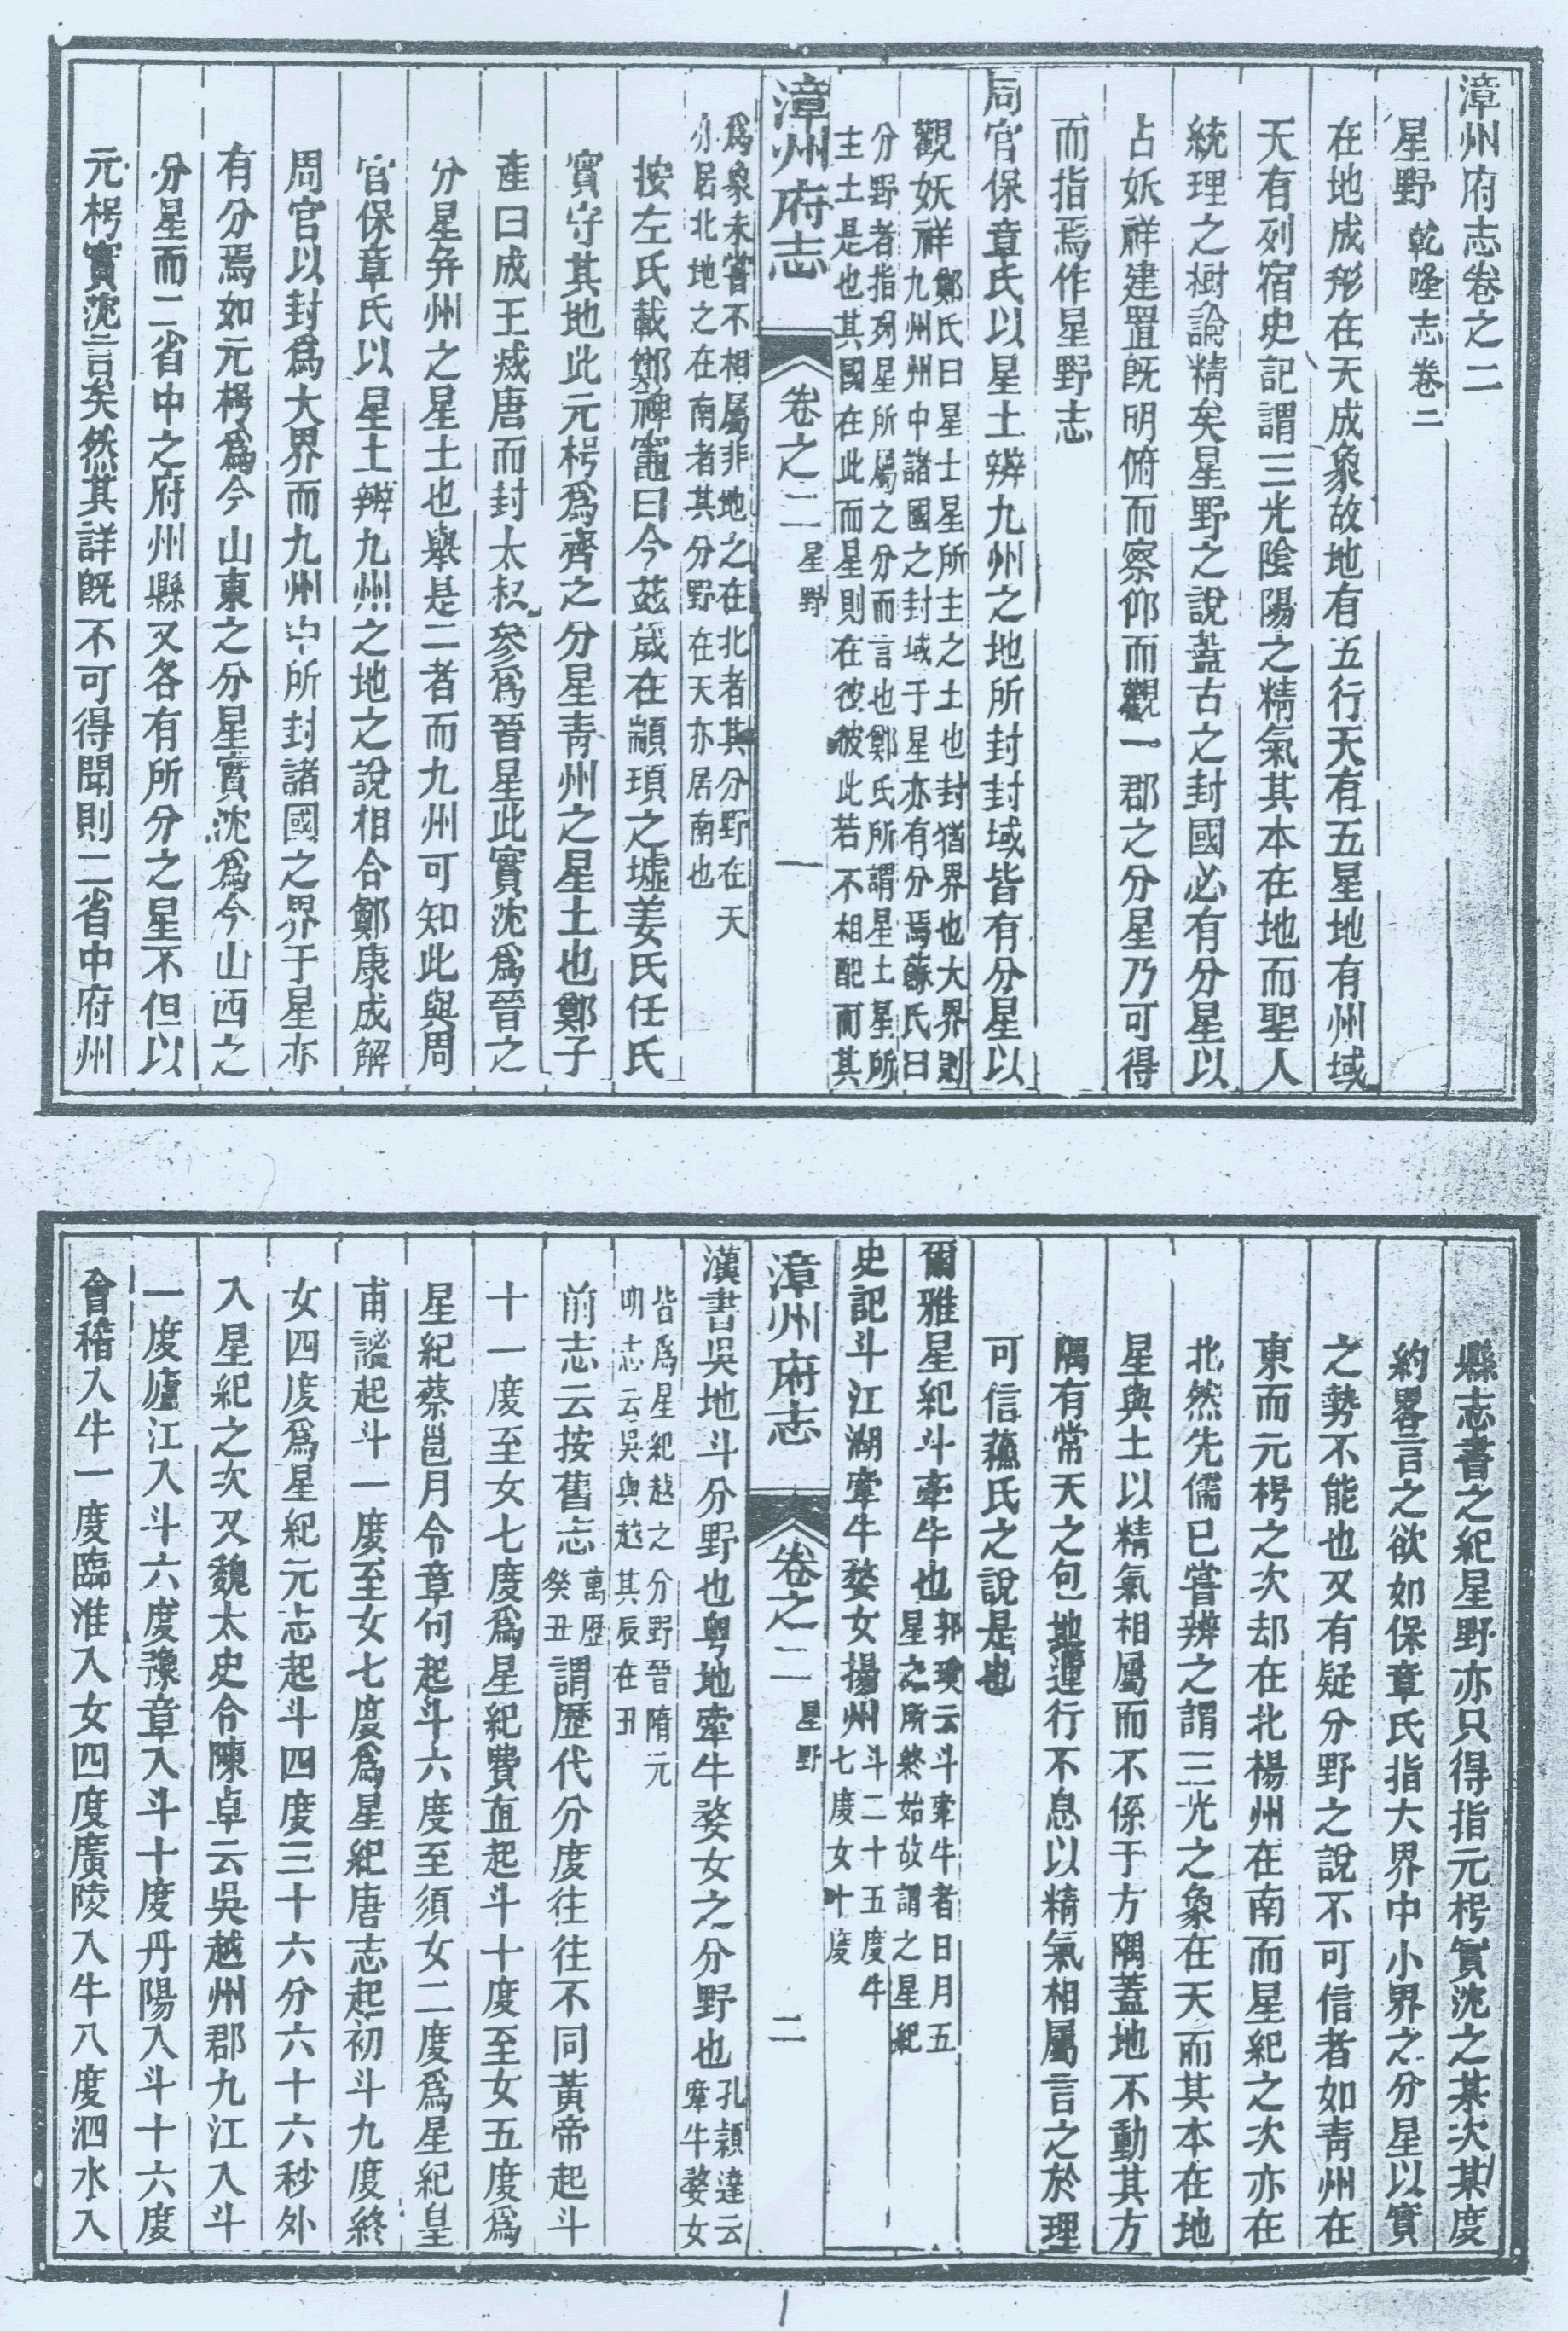 漳州府志卷之二
星野 乾隆志卷二
在地成形在天成象故地有五行天有五星地有州域
天有列宿史記謂三光陰陽之精氣其本在地而聖人
統理之樹論精矣星野之說蓋古之封國必有分星以
占妖祥建置既明俯而察仰而觀一郡之分星乃可得
而指焉作星野志
周官保章氏以星土辨九州之地所封封域皆有分星以
觀妖祥
鄭氏曰星土星所主之土也封猶界也大界則
九州州中諸國之封域于星亦有分焉蘇氏曰
分野者指列星所屬之分而言也鄭氏所謂星土星所
主土是也其國在此而星則在彼彼此若不相配而其
漳州府志 卷之二 星野 一
爲象未嘗不相屬非地之在北者其分野在天
亦居北地之在南者其分野在天亦居南也
按左氏載鄭裨竈曰今茲歲在顓頊之墟姜氏任氏
實守其地此元枵爲齊之分星青州之星土也鄭子
產曰成王滅唐而封太叔參爲晉星此實沈爲晉之
分星并州之星土也舉是二者而九州可知此與周
官保章氏以星土辨九州之地之說相合鄭康成解
周官以封爲大界而九州中所封諸國之界于星亦
有分焉如元枵爲今山東之分星實沈爲今山西之
分星而二省中之府州縣又各有所分之星不但以
元枵實沈言矣然其詳既不可得聞則二省中府州
縣志書之紀星野亦只得指元枵實沈之某次某度
約畧言之欲如保章氏指大界中小界之分星以實
之勢不能也又有疑分野之說不可信者如青州在
東而元枵之次却在北楊州在南而星紀之次亦在
北然先儒已嘗辨之謂三光之象在天而其本在地
星與土以精氣相屬而不係于方隅蓋地不動其方
隅有常天之包地運行不息以精氣相屬言之於理
可信蘇氏之說是也
爾雅星紀斗牽牛也
郭璞云斗牽牛者日月五
星之所終始故謂之星紀
史記斗江湖牽牛婺女揚州
斗二十五度牛
七度女十度
漳州府志 卷之二 星野 二
漢書吳地斗分野也粵地牽牛婺女之分野也
孔穎達云
牽牛婺女
皆爲星紀越之分野晉隋元
明志云吳與越其辰在丑
前志云按舊志
萬歷
癸丑
謂歷代分度往往不同黃帝起斗
十一度至女七度爲星紀費直起斗十度至女五度爲
星紀蔡邕月令章句起斗六度至須女二度爲星紀皇
甫謐起斗一度至女七度爲星紀唐志起初斗九度終
女四度爲星紀元志起斗四度三十六分六十六秒外
入星紀之次又魏太史令陳卓云吳越州郡九江入斗
一度廬江入斗六度豫章入斗十度丹陽入斗十六度
會稽入牛一度臨淮入女四度廣陵入牛八度泗水入